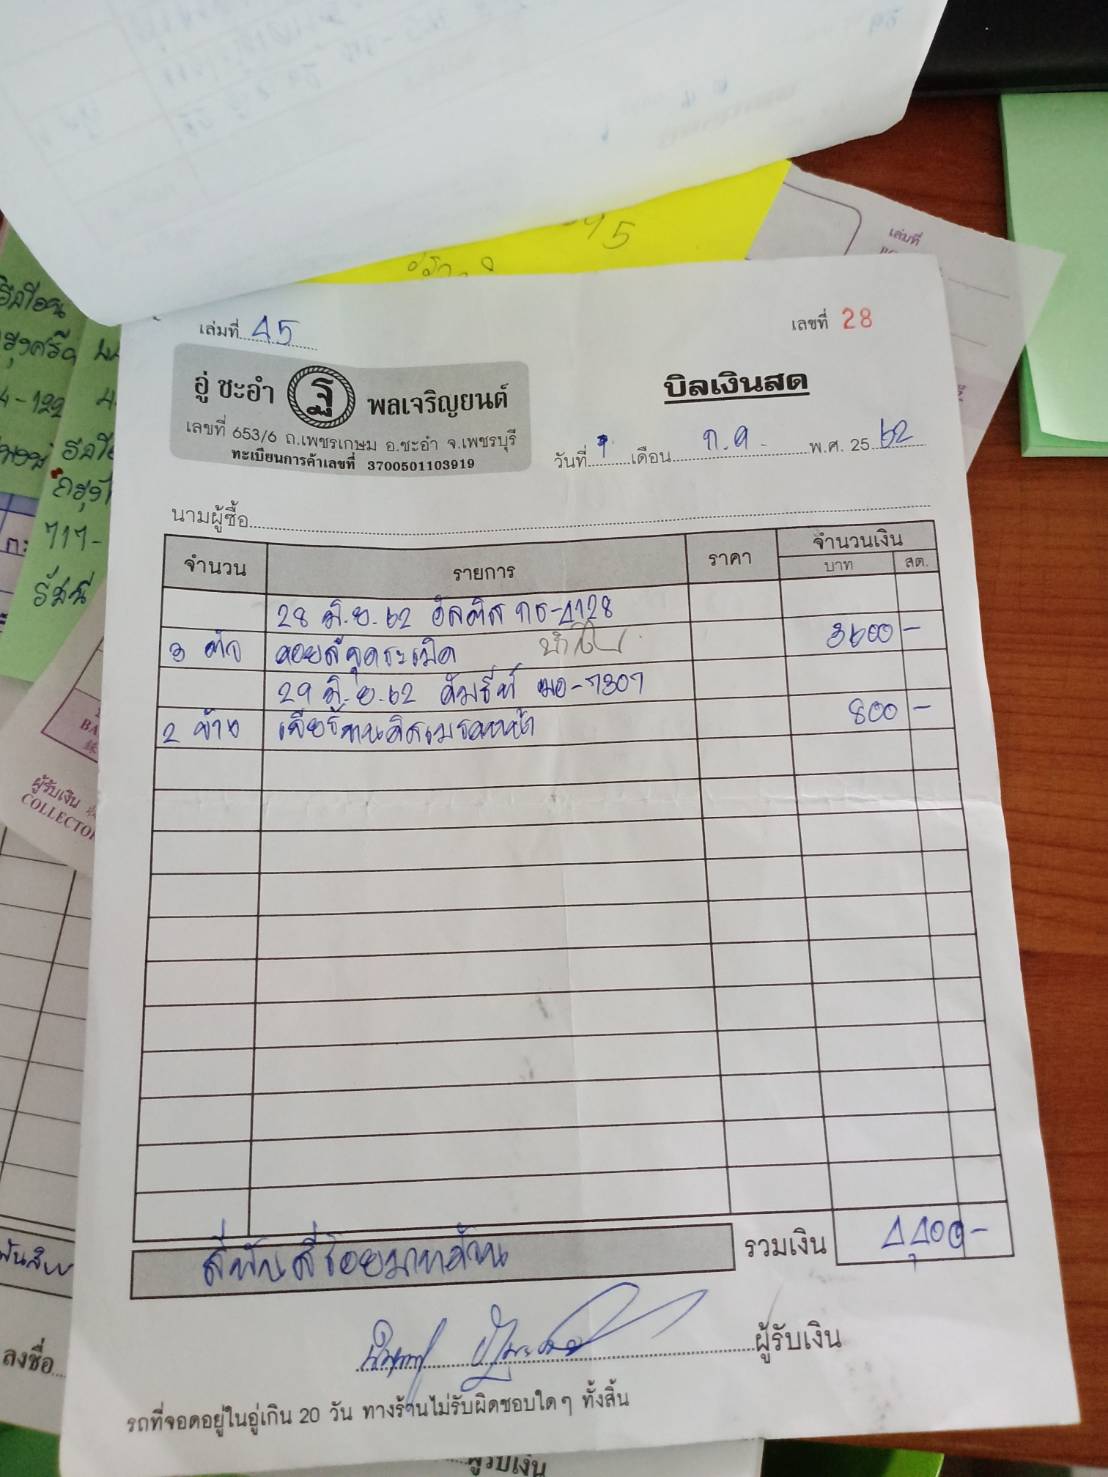 เล่มที่ 45
เลขที่ 28
อู่ ชะอำ ฐ พลเจริญยนต์
เลขที่ 653/6 ถ.เพชรเกษม อ.ชะอำ จ.เพชรบุรี
ทะเบียนการค้าเลขที่ 3700501103919
บิลเงินสด
วันที่ เดือน ก.ค. พ.ศ. 2562
นามผู้ซื้อ
จำนวน รายการ ราคา จำนวนเงิน
บาท สต.
28 มิ.ย. 62 อัลติส กธ-4128
3 ตัว คอยล์จุดระเบิด 3600 -
29 มิ.ย. 62 คัมรี่ห์ 7307
2 ข้าง เจียร์จานดิสเบรคหน้า 800 -
สี่พันสี่ร้อยบาทถ้วน รวมเงิน 4,400 -
ผู้รับเงิน
รถที่จอดอยู่ในอู่เกิน 20 วัน ทางร้านไม่รับผิดชอบใดๆ ทั้งสิ้น
เล่มที่
ผู้รับเงิน
ลงชื่อ
ผู้รับเงิน